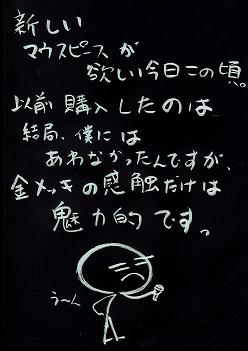 新しい
マウスピースが
欲しい今日この頃。
以前購入したのは
結局、僕には
あわなかったんですが、
金メッキの感触だけは
魅力的です。
う〜ん